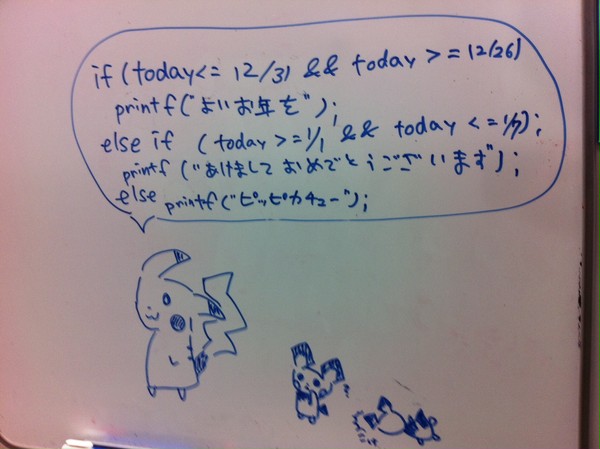 if (today<= 12/31 && today >= 12/26)
printf("よいお年を");
else if (today>=1/1 && today <= 1/7);
printf("あけましておめでとうございます");
else printf("ピッピカチュー");